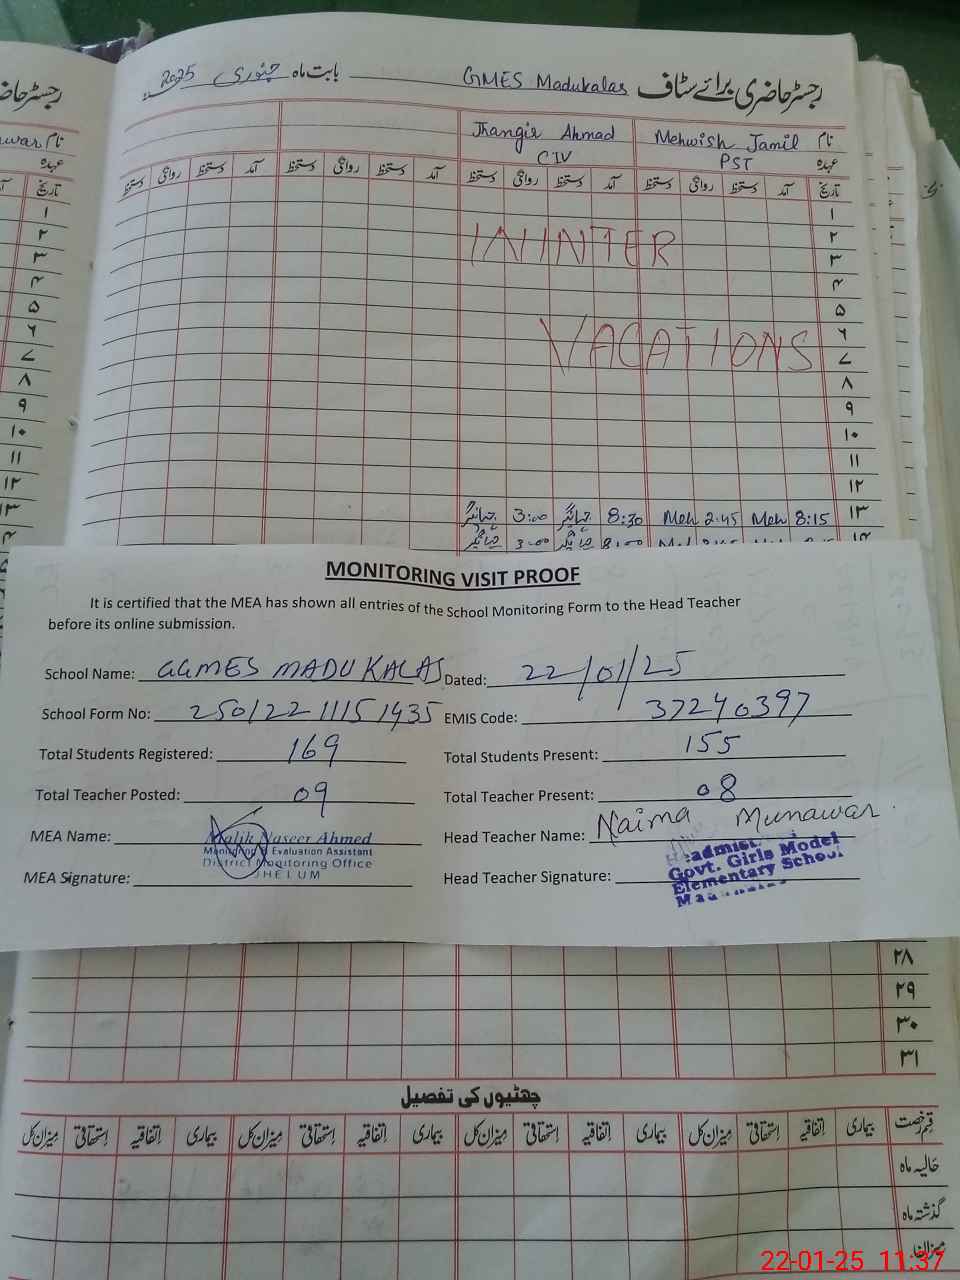 رجسٹر حاضری برائے سٹاف GMES Madukalas بابت ماہ جنوری 2025
نام Mehwish Jamil Jhangir Ahmad
عہدہ PST CIV
تاریخ آمد دستخط روانگی دستخط آمد دستخط روانگی دستخط آمد دستخط روانگی دستخط آمد دستخط روانگی دستخط
۱
۲
WINTER
۳
۴
۵
۶
VACATIONS
۷
۸
۹
۱۰
۱۱
۱۲
۱۳ 8:15 Meh 2:45 Meh 8:30 جہانگیر 3:00 جہانگیر
MONITORING VISIT PROOF
It is certified that the MEA has shown all entries of the School Monitoring Form to the Head Teacher
before its online submission.
School Name: GGMES MADUKALAS Dated: 22/01/25
School Form No: 25012211151435 EMIS Code: 37240397
Total Students Registered: 169 Total Students Present: 155
Total Teacher Posted: 09 Total Teacher Present: 08
MEA Name: Malik Naseer Ahmed Head Teacher Name: Naima Munawar
Monitoring & Evaluation Assistant
District Monitoring Office
JHELUM
MEA Signature: Head Teacher Signature:
Govt. Girls Model
Elementary School
۲۸
۲۹
۳۰
۳۱
چھٹیوں کی تفصیل
قسم رخصت بیماری اتفاقیہ استحقاقی میزان کل بیماری اتفاقیہ استحقاقی میزان کل بیماری اتفاقیہ استحقاقی میزان کل بیماری اتفاقیہ استحقاقی میزان کل
حالیہ ماہ
گذشتہ ماہ
22-01-25 11:37